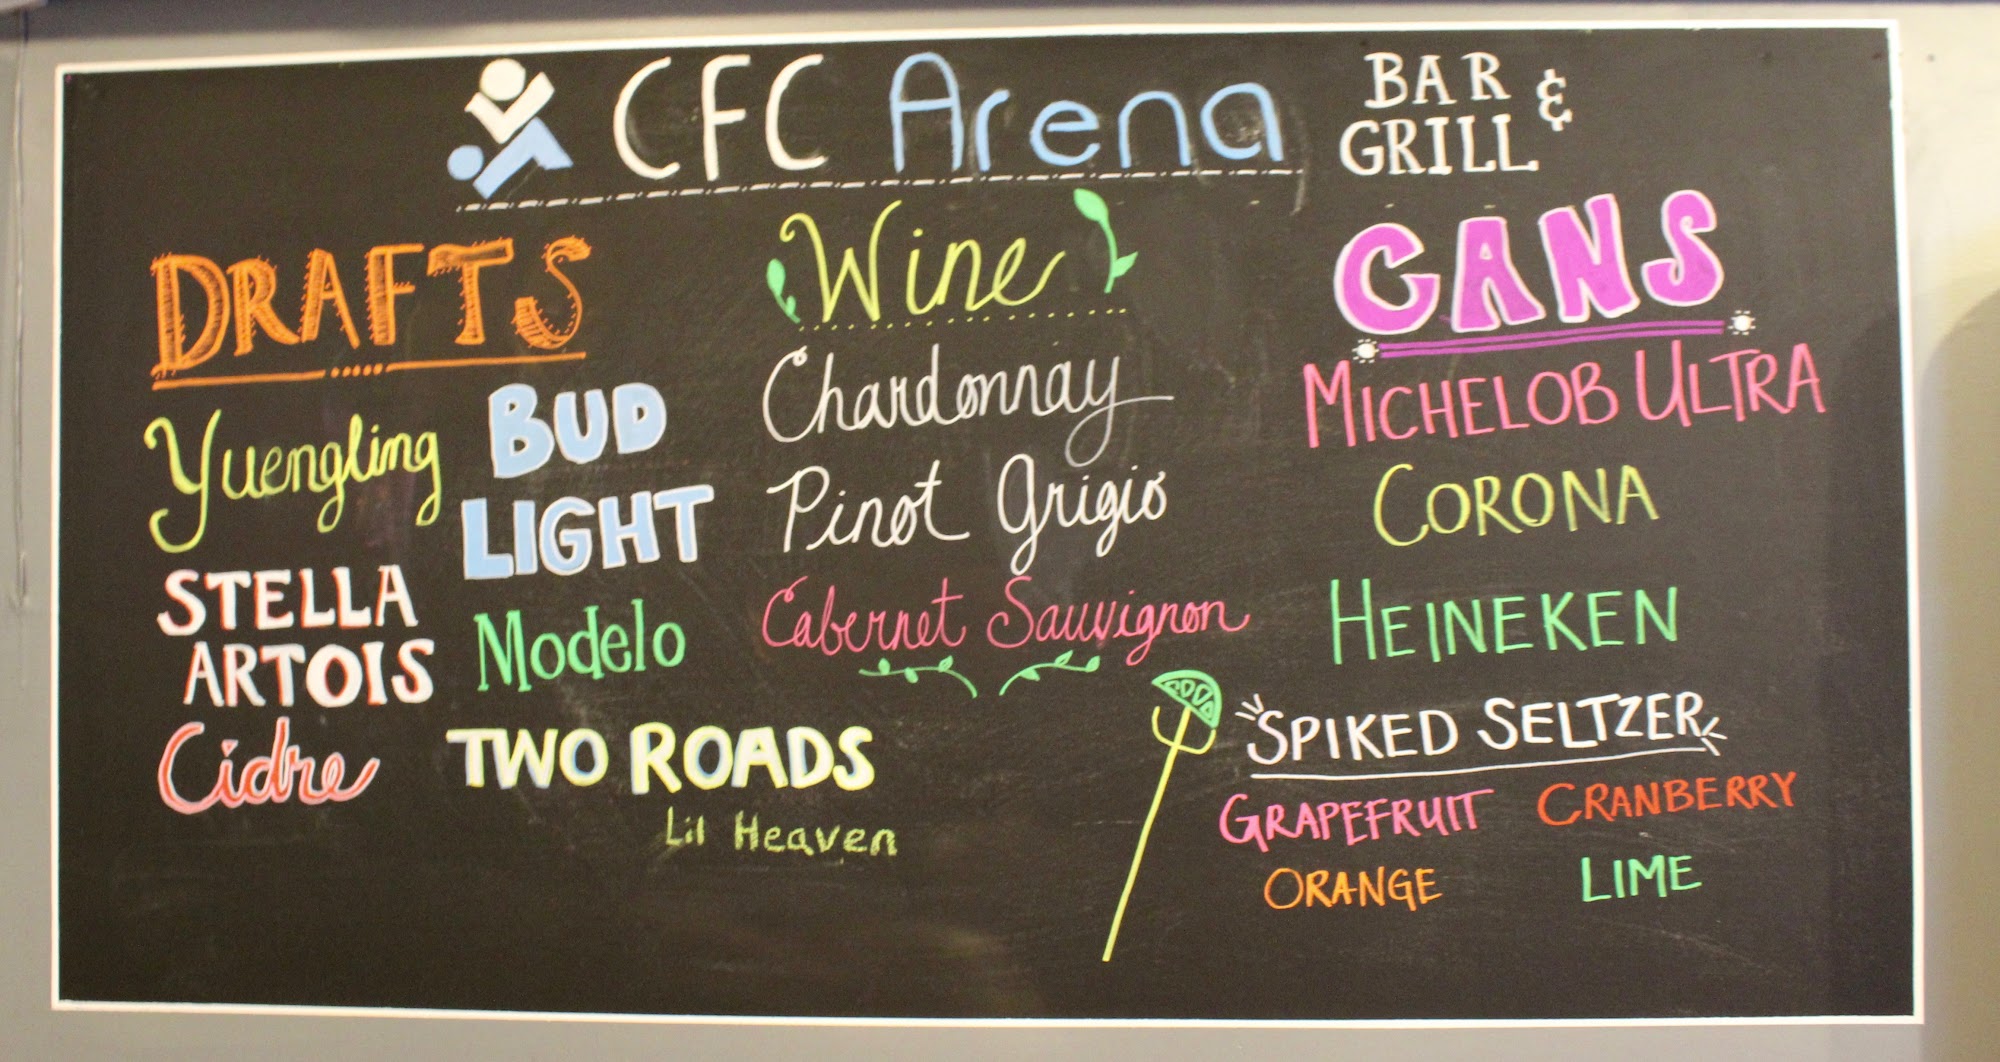 CFC Arena
BAR &
GRILL
DRAFTS
Yuengling
STELLA
ARTOIS
Cidre
BUD
LIGHT
Modelo
TWO ROADS
Lil Heaven
Wine
Chardonnay
Pinot Grigio
Cabernet Sauvignon
CANS
MICHELOB ULTRA
CORONA
HEINEKEN
SPIKED SELTZER
GRAPEFRUIT CRANBERRY
ORANGE LIME